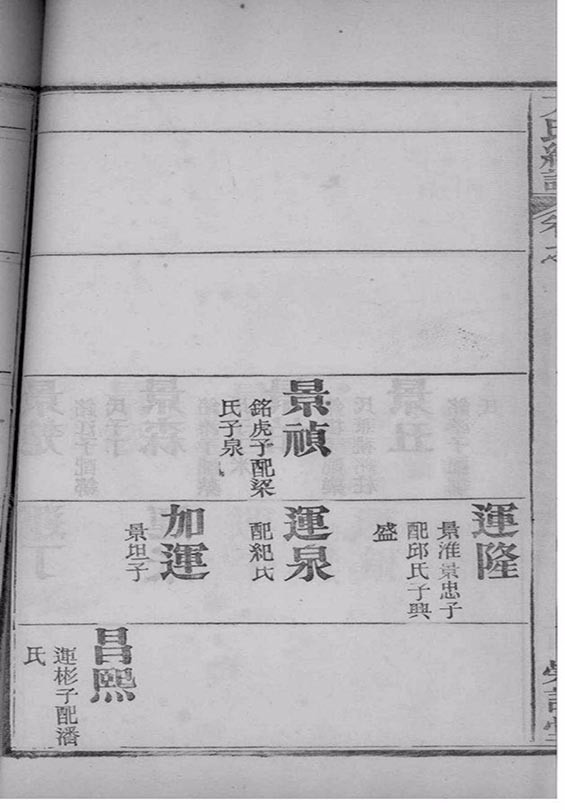 景禎
銘虎子配梁
氏子泉
運隆
景淮景忠子
配邱氏子興
盛
運泉
配紀氏
加運
景坦子
昌熙
運彬子配潘
氏